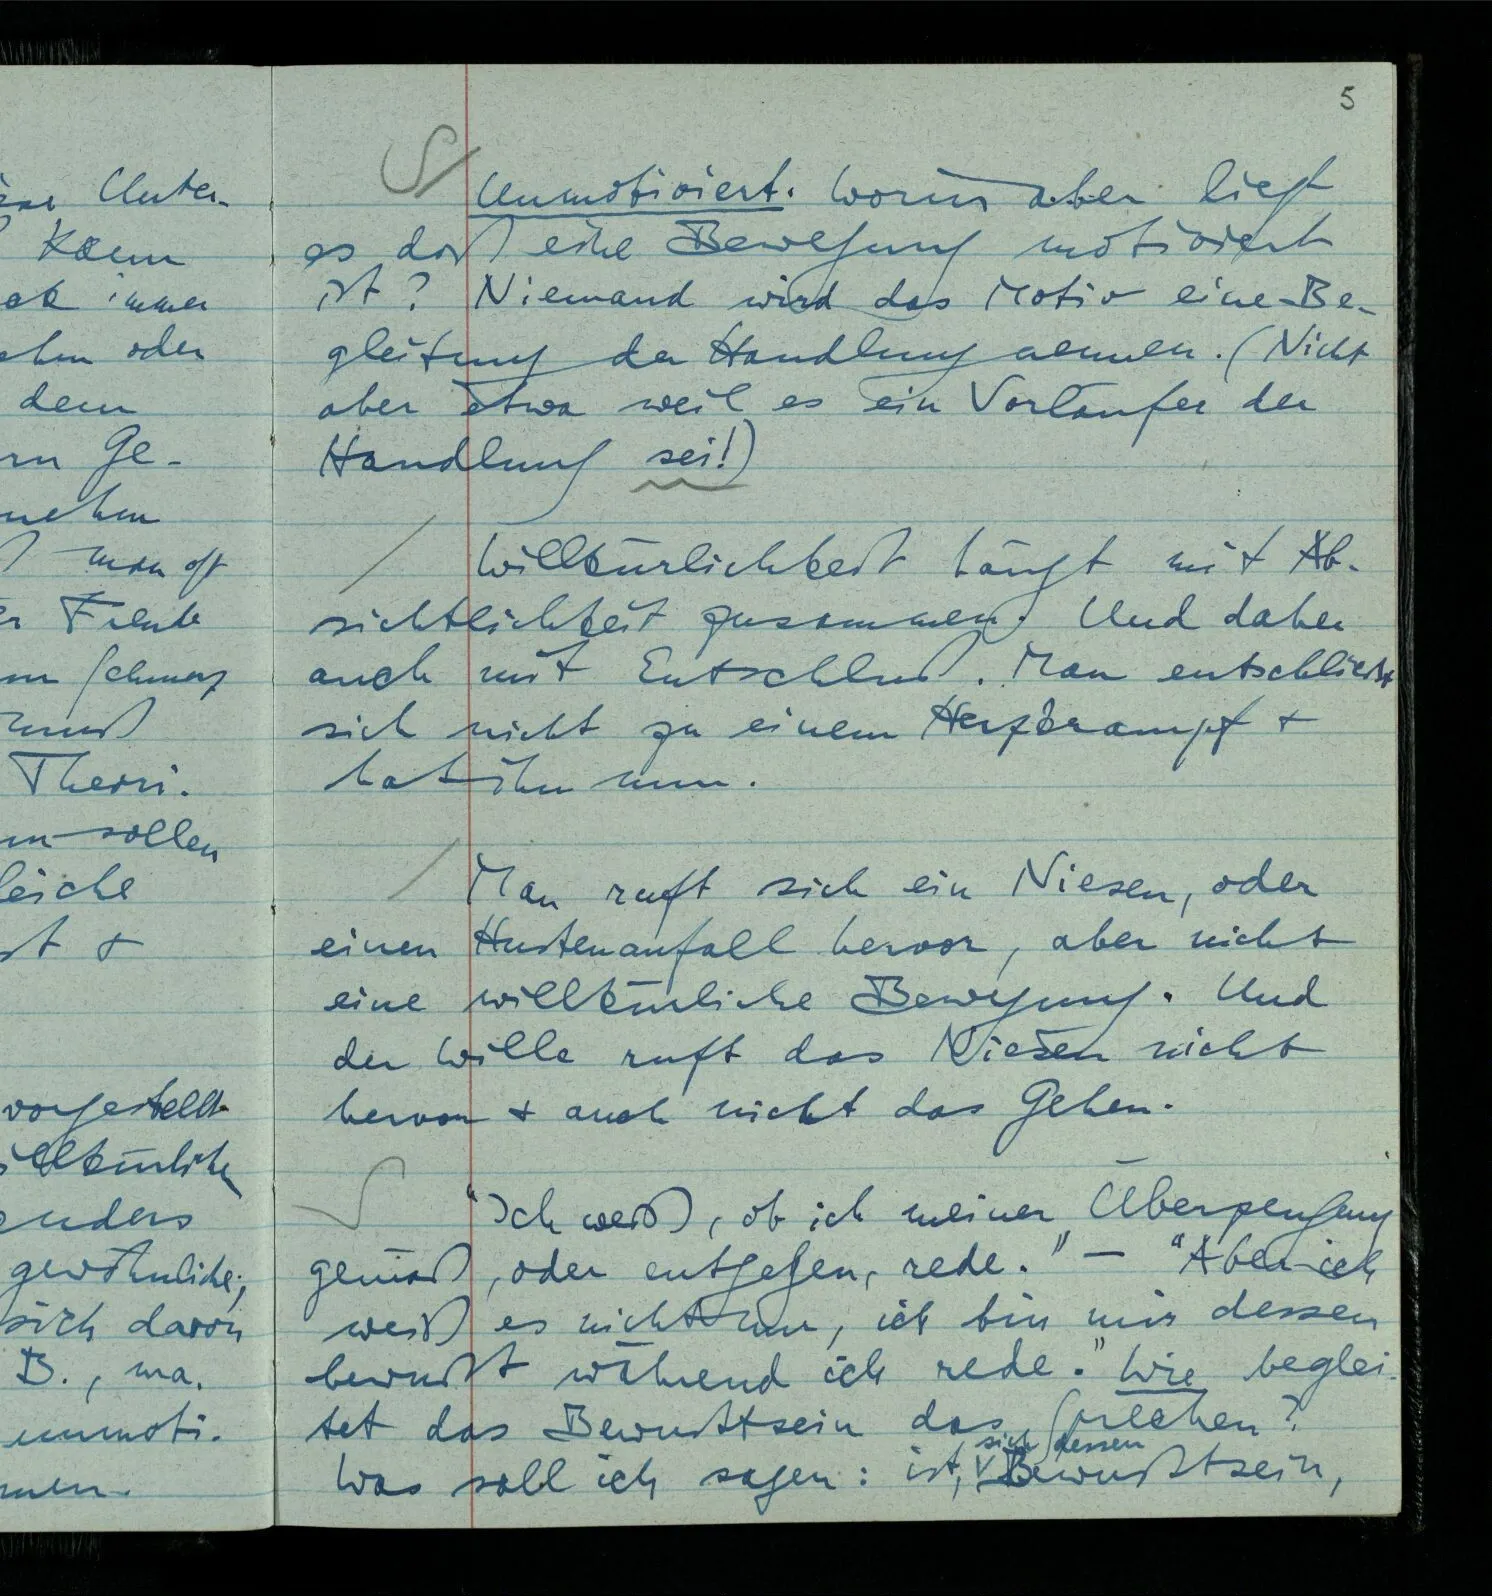 5
Unmotiviert. Worin aber liegt
es daß eine Bewegung motiviert
ist? Niemand wird das Motiv eine Be-
gleitung der Handlung nennen. (Nicht
aber etwa weil es ein Vorläufer der
Handlung sei!)
Willkürlichkeit hängt mit Ab-
sichtlichkeit zusammen. Und daher
auch mit Entschluß. Man entschließt
sich nicht zu einem Herzkrampf +
hat ihn nun.
Man ruft sich ein Niesen, oder
einen Hustenanfall hervor, aber nicht
eine willkürliche Bewegung. Und
der Wille ruft das Niesen nicht
hervor + auch nicht das Gehen.
“Ich weiß, ob ich meiner Überzeugung
gemäß, oder entgegen, rede.” — “Aber ich
weiß es nicht nur, ich bin mir dessen
bewußt während ich rede.” Wie beglei-
tet das Bewußtsein das Sprechen?
Was soll ich sagen: ist, sich dessen Bewußtsein,
Unter-
Kann
immer
oder
dem
Ge-
man oft
Freude
Schmerz
muß
Theori.
sollen
+
vorgestellt
gewöhnliche;
sich davon
B., ma.
unmoti.